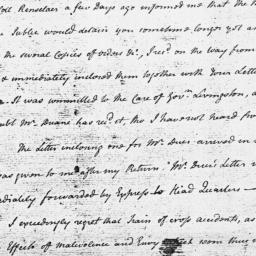 Coll Renselaer a few Days ago informed me that the
Public would detain you sometime longer yet as
the several Copies of orders &c, I recd on the way from
& immediately inclosed them together with your Letter
It was committed to the Care of Govr Livingston, a
doubt Mr. Duane has recd it, tho I have not heard fro
The Letter inclosing one for Mr. Duer arrived in
was given to me after my Return. Mr. Duer's Letter
ediately forwarded by Express to Head Quarters —
I exceedingly regret that Train of cross accidents, as
Effects of malevolence and Envy room thus